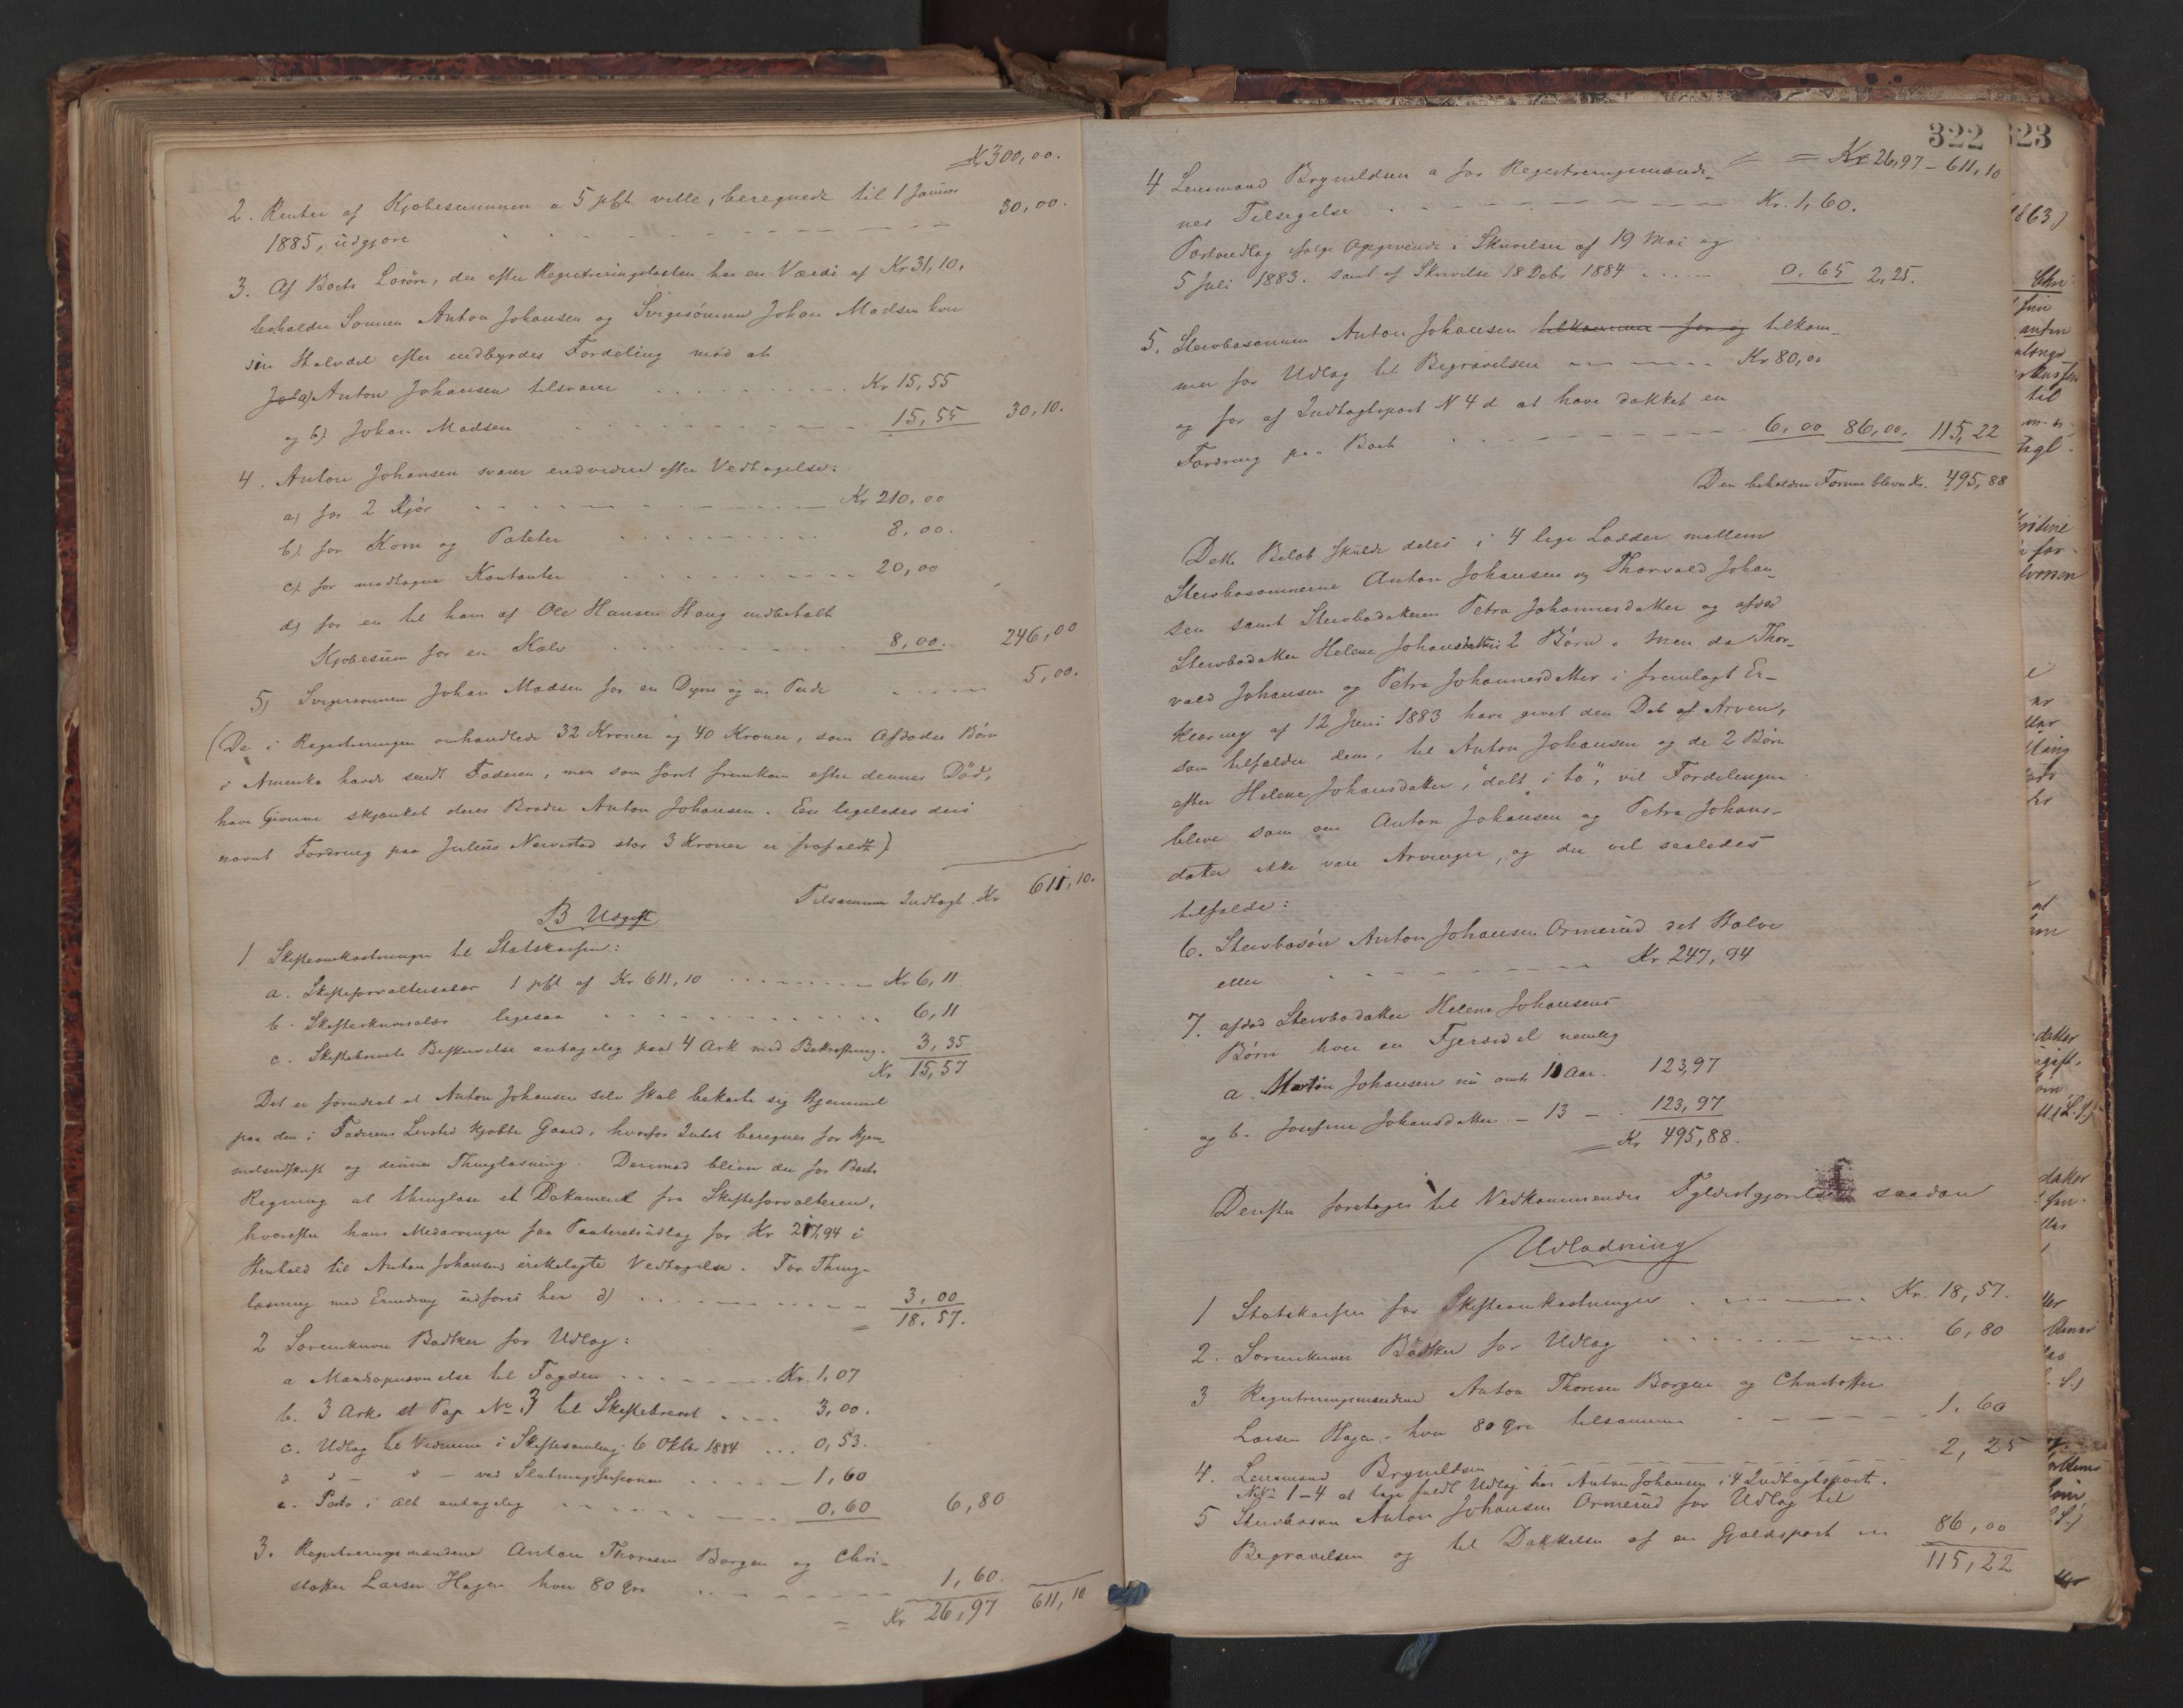 Kr 300,00.
2. Renter af Kjøbesummen a 5 pCt velle, beregnede til 1 Januar
1885, udgjøre 30,00.
3. Af Boets Løsøre, der efter Registreringstaxten har en Værdi af Kr 31,10,
beholder Sønnen Anton Johansen og Svigersønnen Johan Madsen hver
sin Halvdel efter indbyrdes Fordeling mod at
a) Anton Johansen tilsvarer Kr 15,55
og b) Johan Madsen 15,55 30,10.
4. Anton Johansen svarer endvidere efter Vedtagelse:
a) for 2 Kjør Kr 210,00
b) for Korn og Poteter 8,00.
c) for modtagne Kontanter 20,00
d) for en til ham af Ole Hansen Haug indbetalt
Kjøbesum for en Kalv 8,00. 246,00
5) Svigersønnen Johan Madsen for en Dyne og en Pude 5,00.
(De i Registreringen omhandlede 32 Kroner og 40 Kroner, som Afdødes Børn
i Amerika havde sendt Faderen, men som først fremkom efter dennes Død,
have Giverne skjænket deres Broder Anton Johansen. En ligeledes deri
nævnt Fordring paa Julius Nærvestad stor 3 Kroner er frafaldt.)
Tilsammen Indtægt Kr 611,10.
B Udgift
1 Skifteomkostninger til Statskassen:
a. Skifteforvaltersalær 1 pCt af Kr 611,10 Kr 6,11
b. Skifteskriversalær ligesaa 6,11
c. Skiftebrevets Beskrivelse antagelig paa 4 Ark med Bekræftning. 3,35
Kr 15,57
Det er forudsat at Anton Johansen selv skal bekoste sig Hjemmel
paa den i Faderens Levetid kjøbte Gaard, hvorfor Intet beregnes for Hjem-
melsudskrift og dennes Thinglæsning. Derimod bliver der for Boets
Regning at thinglæse et Dokument fra Skifteforvalteren,
hvorefter hans Medarvinger faa Panteretsudlæg for Kr 217,94 i
Henhold til Anton Johansens Vedtagelse. For Thing-
læsning med Erindring udføres her d) 3,00
= 18,57.
2 Sorenskriver Bødtker for Udlæg:
a Mandsopnævnelse til Fogden Kr. 1,07
b. 3 Ark st Pap No 3 til Skiftebrevet 3,00.
c. Udlæg til Vidnerne i Skiftesamling 6 Oktbr 1884 0,53.
d " - " - ved Slutningssessionen 1,60
e. Porto i Alt antagelig 0,60 6,80
3. Registreringsmændene Anton Thoresen Borgen og Chri-
stoffer Larsen Hagen hver 80 Øre 1,60.
= Kr 26,97 611,10
322
323
= Kr 26,97 - 611,10
4 Lensmand Brynildsen a for Registreringsmænde-
nes Tilsigelse Kr. 1,60.
Portoudlæg ifølge Opgivende i Skrivelser af 19 Mai og
5 Juli 1883. samt af Skrivelse 18 Debr 1884 0,65 2,25.
5. Stervbosønnen Anton Johansen tilkommer for og tilkom-
mer for Udlæg til Begravelsen Kr 80,00
og for af Indtægtspost N 4 d at have dækket en
Fordring paa Boet 6,00 86,00. 115,22
Den beholdne Formue bliver Kr. 495,88
Dette Beløb skulde deles i 4 lige Lodder mellem
Stervbosønnerne Anton Johansen og Thorvald Johan-
sen samt Stervbodatteren Petra Johannesdatter og afdød
Stervbodatter Helene Johansdatters 2 Børn. Men da Thor-
vald Johansen og Petra Johannesdatter i fremlagt Er-
klæring af 12 Juni 1883 have givet den Del af Arven,
som tilfalder dem, til Anton Johansen og de 2 Børn
efter Helene Johansdatter, "delt i to", vil Fordelingen
blive som om Anton Johansen og Petra Johans-
datter ikke vare Arvinger, og der vil saaledes
tilfalde:
6. Stervbosøn Anton Johansen Ormerud det Halve
eller Kr 247,94
7. afdød Stervbodatter Helene Johansens
Børn hver en Fjerdedel nemlig
a. Martin Johansen nu omtr 11 Aar. 123,97
og b. Josefine Johansdatter - 13 - 123,97
= Kr 495,88.
Derefter foretages til Vedkommendes Fyldestgjørelse saadan
Udlodning
1 Statskassen for Skifteomkostninger Kr. 18,57.
2. Sorenskriver Bødtker for Udlæg 6,80
3 Registreringsmændene Anton Thoresen Borgen og Christoffer
Larsen Hagen hver 80 Øre tilsammen 1,60
4. Lensmand Brynildsen 2,25
NNo 1-4 at tage fuldt Udlæg hos Anton Johansen i 4 Indtægtspost.
5 Stervbosøn Anton Johansen Ormerud for Udlæg til
Begravelsen og til Dækkelse af en Gjældspost 86,00
115,22